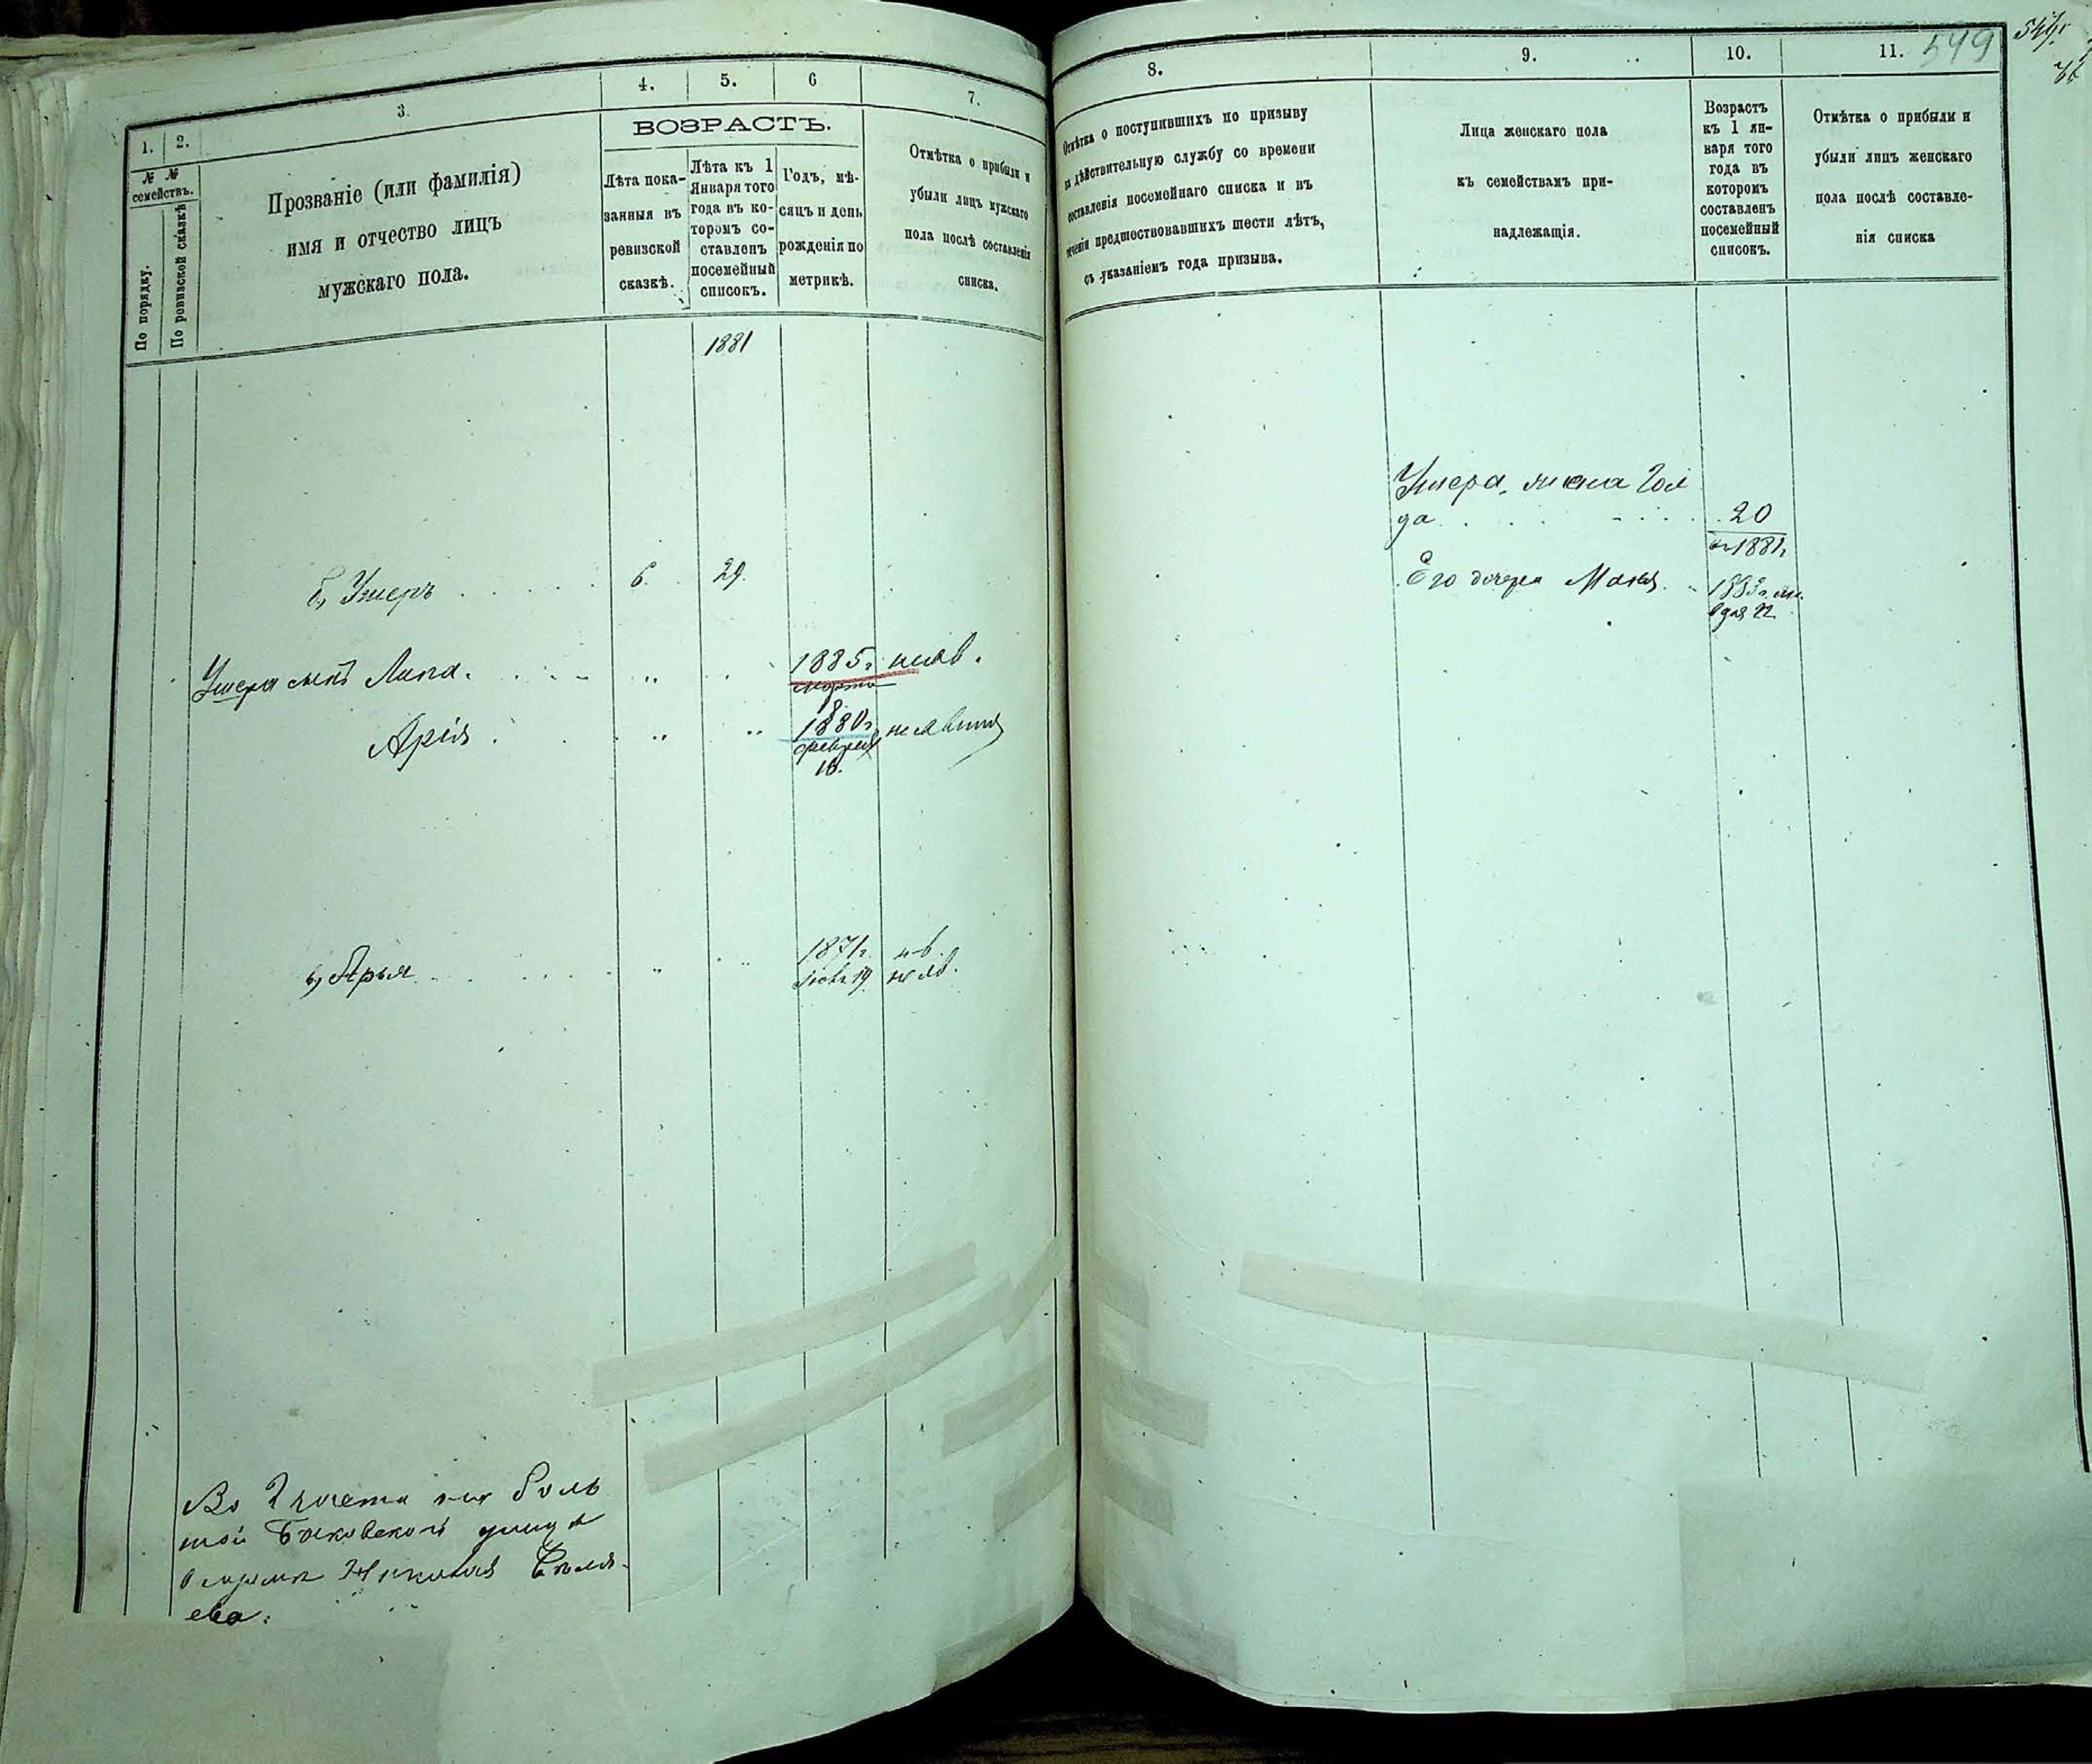 549
1.
2.
3.
4.
5.
6
7.
№ №
семействъ.
По порядку.
По ревизской сказкѣ
Прозваніе (или фамилія)
имя и отчество лицъ
мужскаго пола.
ВОЗРАСТЪ.
Лѣта пока-
занныя въ
ревизской
сказкѣ.
Лѣта къ 1
Января того
года въ ко-
торомъ со-
ставленъ
посемейный
списокъ.
Годъ, мѣ-
сяцъ и день
рожденія по
метрикѣ.
Отмѣтка о прибыли и
убыли лицъ мужскаго
пола послѣ составленія
списка.
1881
б, Ушеръ 6. 29.
Ушера сынъ Липа. 1885 г. неяв.
марта
8.
Арія 1880 г. неявился
февраля
18.
в, Арья 1871 г.
19 неяв.
Во 2 части на Боль
шой улицѣ
Николая
ева.
8.
9.
10.
11.
Отмѣтка о поступившихъ по призыву
на дѣйствительную службу со времени
составленія посемейнаго списка и въ
теченіи предшествовавшихъ шести лѣтъ,
съ указаніемъ года призыва.
Лица женскаго пола
къ семействамъ при-
надлежащія.
Возрастъ
къ 1 ян-
варя того
года въ
которомъ
составленъ
посемейный
списокъ.
Отмѣтка о прибыли и
убыли лицъ женскаго
пола послѣ составле-
нія списка
Ушера, жена Гол
да 20
1881 г.
Его дочери 1883 г.
22